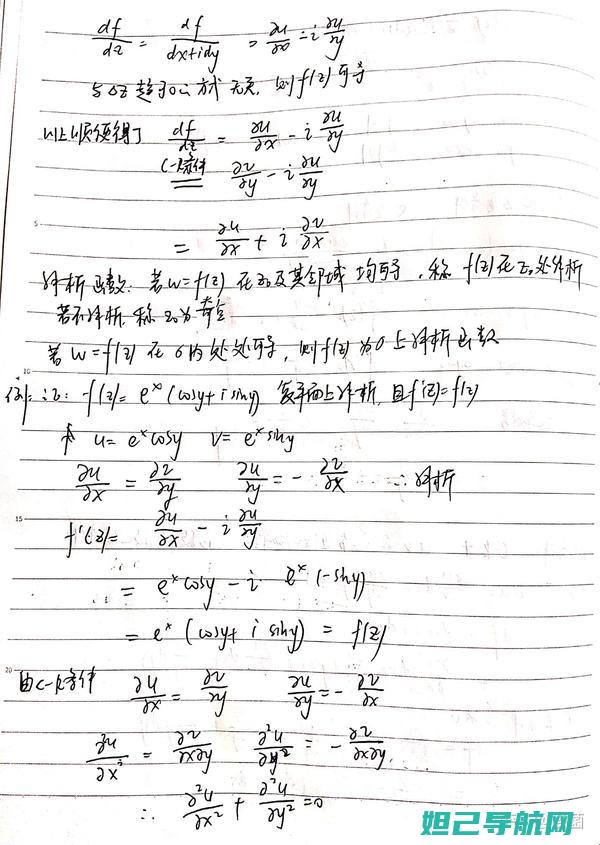 df/dz = df/dx+idy = ∂u/∂x - i ∂u/∂y
与Δz趋于0的方式无关, 则f(z)可导
以上顺便得了 df/dz = ∂u/∂x - i ∂u/∂y
C-R条件 ∂v/∂y - i ∂u/∂y
5
= ∂u/∂x + i ∂v/∂x
解析函数: 若w=f(z) 在z₀及其邻域 均可导, 称 f(z)在z₀处解析
若不解析, 称z₀为奇点
若 w=f(z) 在 σ内处处可导, 则f(z)为σ上解析函数
10
例: 证: f(z)= eˣ(cosy+isiny) 复平面上解析, 且f'(z)=f(z)
u= eˣcosy v= eˣsiny
∂u/∂x = ∂v/∂y ∂u/∂y = - ∂v/∂x ∴解析
15
f'(z)= ∂u/∂x - i ∂u/∂y
= eˣcosy - i eˣ(-siny)
= eˣ(cosy+ i siny) = f(z)
20
由C-R条件 ∂u/∂x = ∂v/∂y ∂u/∂y = - ∂v/∂x
∂²u/∂x² = ∂v/∂x∂y ∂²u/∂y² = - ∂v/∂x∂y
∴ ∂²u/∂x² + ∂²u/∂y² =0
妲己导航网